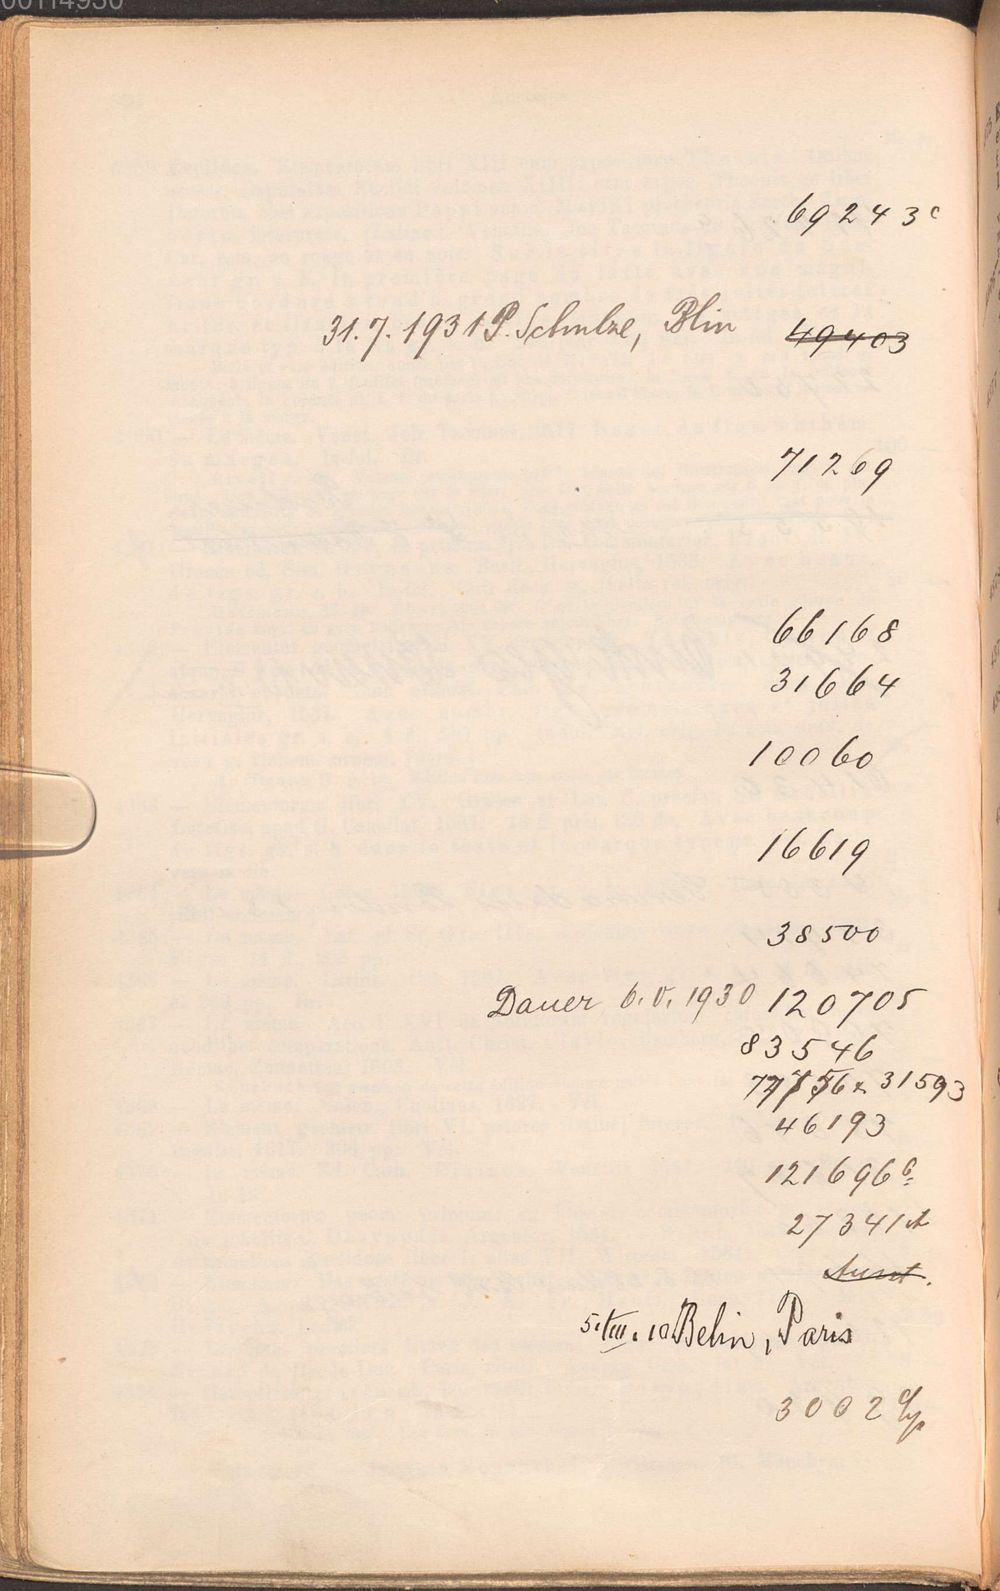 00114930
69243c
31.7.1931 P. Schulze, Blin 49403
71269
66168
31664
10060
16619
38500
Dauer 6.V.1930 120705
83546
31593
46193
121696
27341
5.VIII.10 Belin, Paris
3002